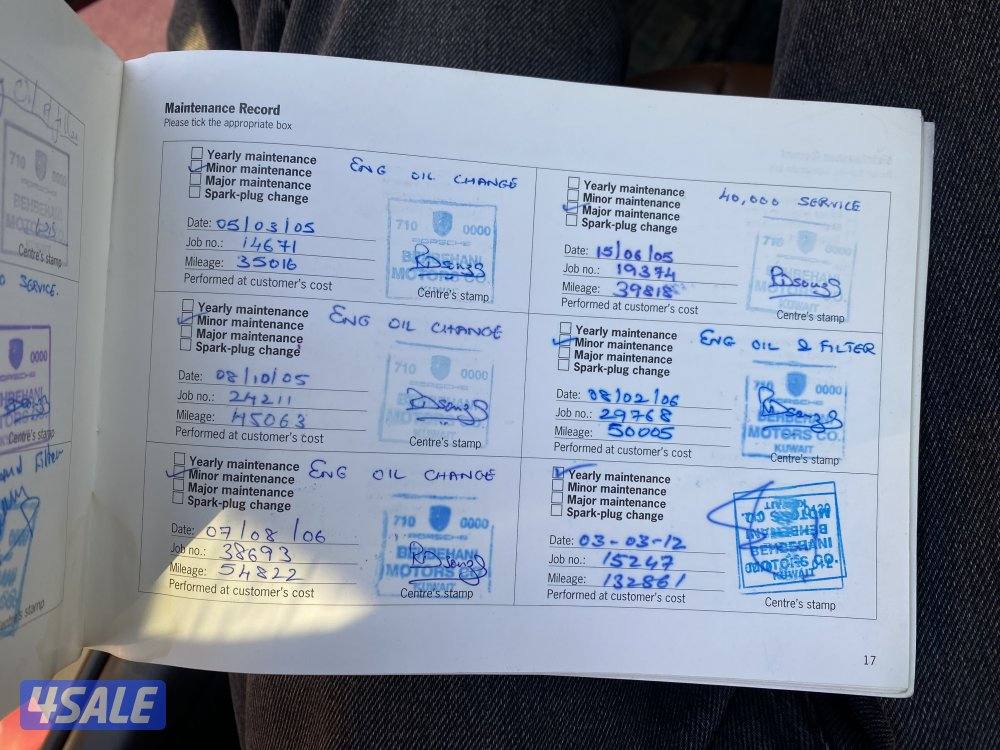 Maintenance Record
Please tick the appropriate box
Yearly maintenance
Minor maintenance
Major maintenance
Spark-plug change
ENG OIL CHANGE
Date: 05/03/05
Job no.: 14671
Mileage: 35016
Performed at customer's cost
710 0000
PORSCHE
BEHBEHANI
MOTORS CO.
Centre's stamp
Yearly maintenance
Minor maintenance
Major maintenance
Spark-plug change
40,000 SERVICE
Date: 15/06/05
Job no.: 19374
Mileage: 39818
Performed at customer's cost
710 0000
BEHBEHANI
MOTORS CO.
KUWAIT
Centre's stamp
Yearly maintenance
Minor maintenance
Major maintenance
Spark-plug change
ENG OIL CHANGE
Date: 08/10/05
Job no.: 24211
Mileage: 45063
Performed at customer's cost
710 0000
PORSCHE
Centre's stamp
Yearly maintenance
Minor maintenance
Major maintenance
Spark-plug change
ENG OIL & FILTER
Date: 08/02/06
Job no.: 29768
Mileage: 50005
Performed at customer's cost
710 0000
PORSCHE
MOTORS CO.
KUWAIT
Centre's stamp
Yearly maintenance
Minor maintenance
Major maintenance
Spark-plug change
ENG OIL CHANGE
Date: 07/08/06
Job no.: 38693
Mileage: 54822
Performed at customer's cost
710 0000
BEHBEHANI
MOTORS CO.
KUWAIT
Centre's stamp
Yearly maintenance
Minor maintenance
Major maintenance
Spark-plug change
Date: 03-03-12
Job no.: 15247
Mileage: 132861
Performed at customer's cost
BEHBEHANI
MOTORS CO.
KUWAIT
Centre's stamp
17
Oil & filter
710
BEHBEHANI
MOTORS
Centre's stamp
SERVICE.
0000
PORSCHE
Centre's stamp
Filter
Centre's stamp
4SALE